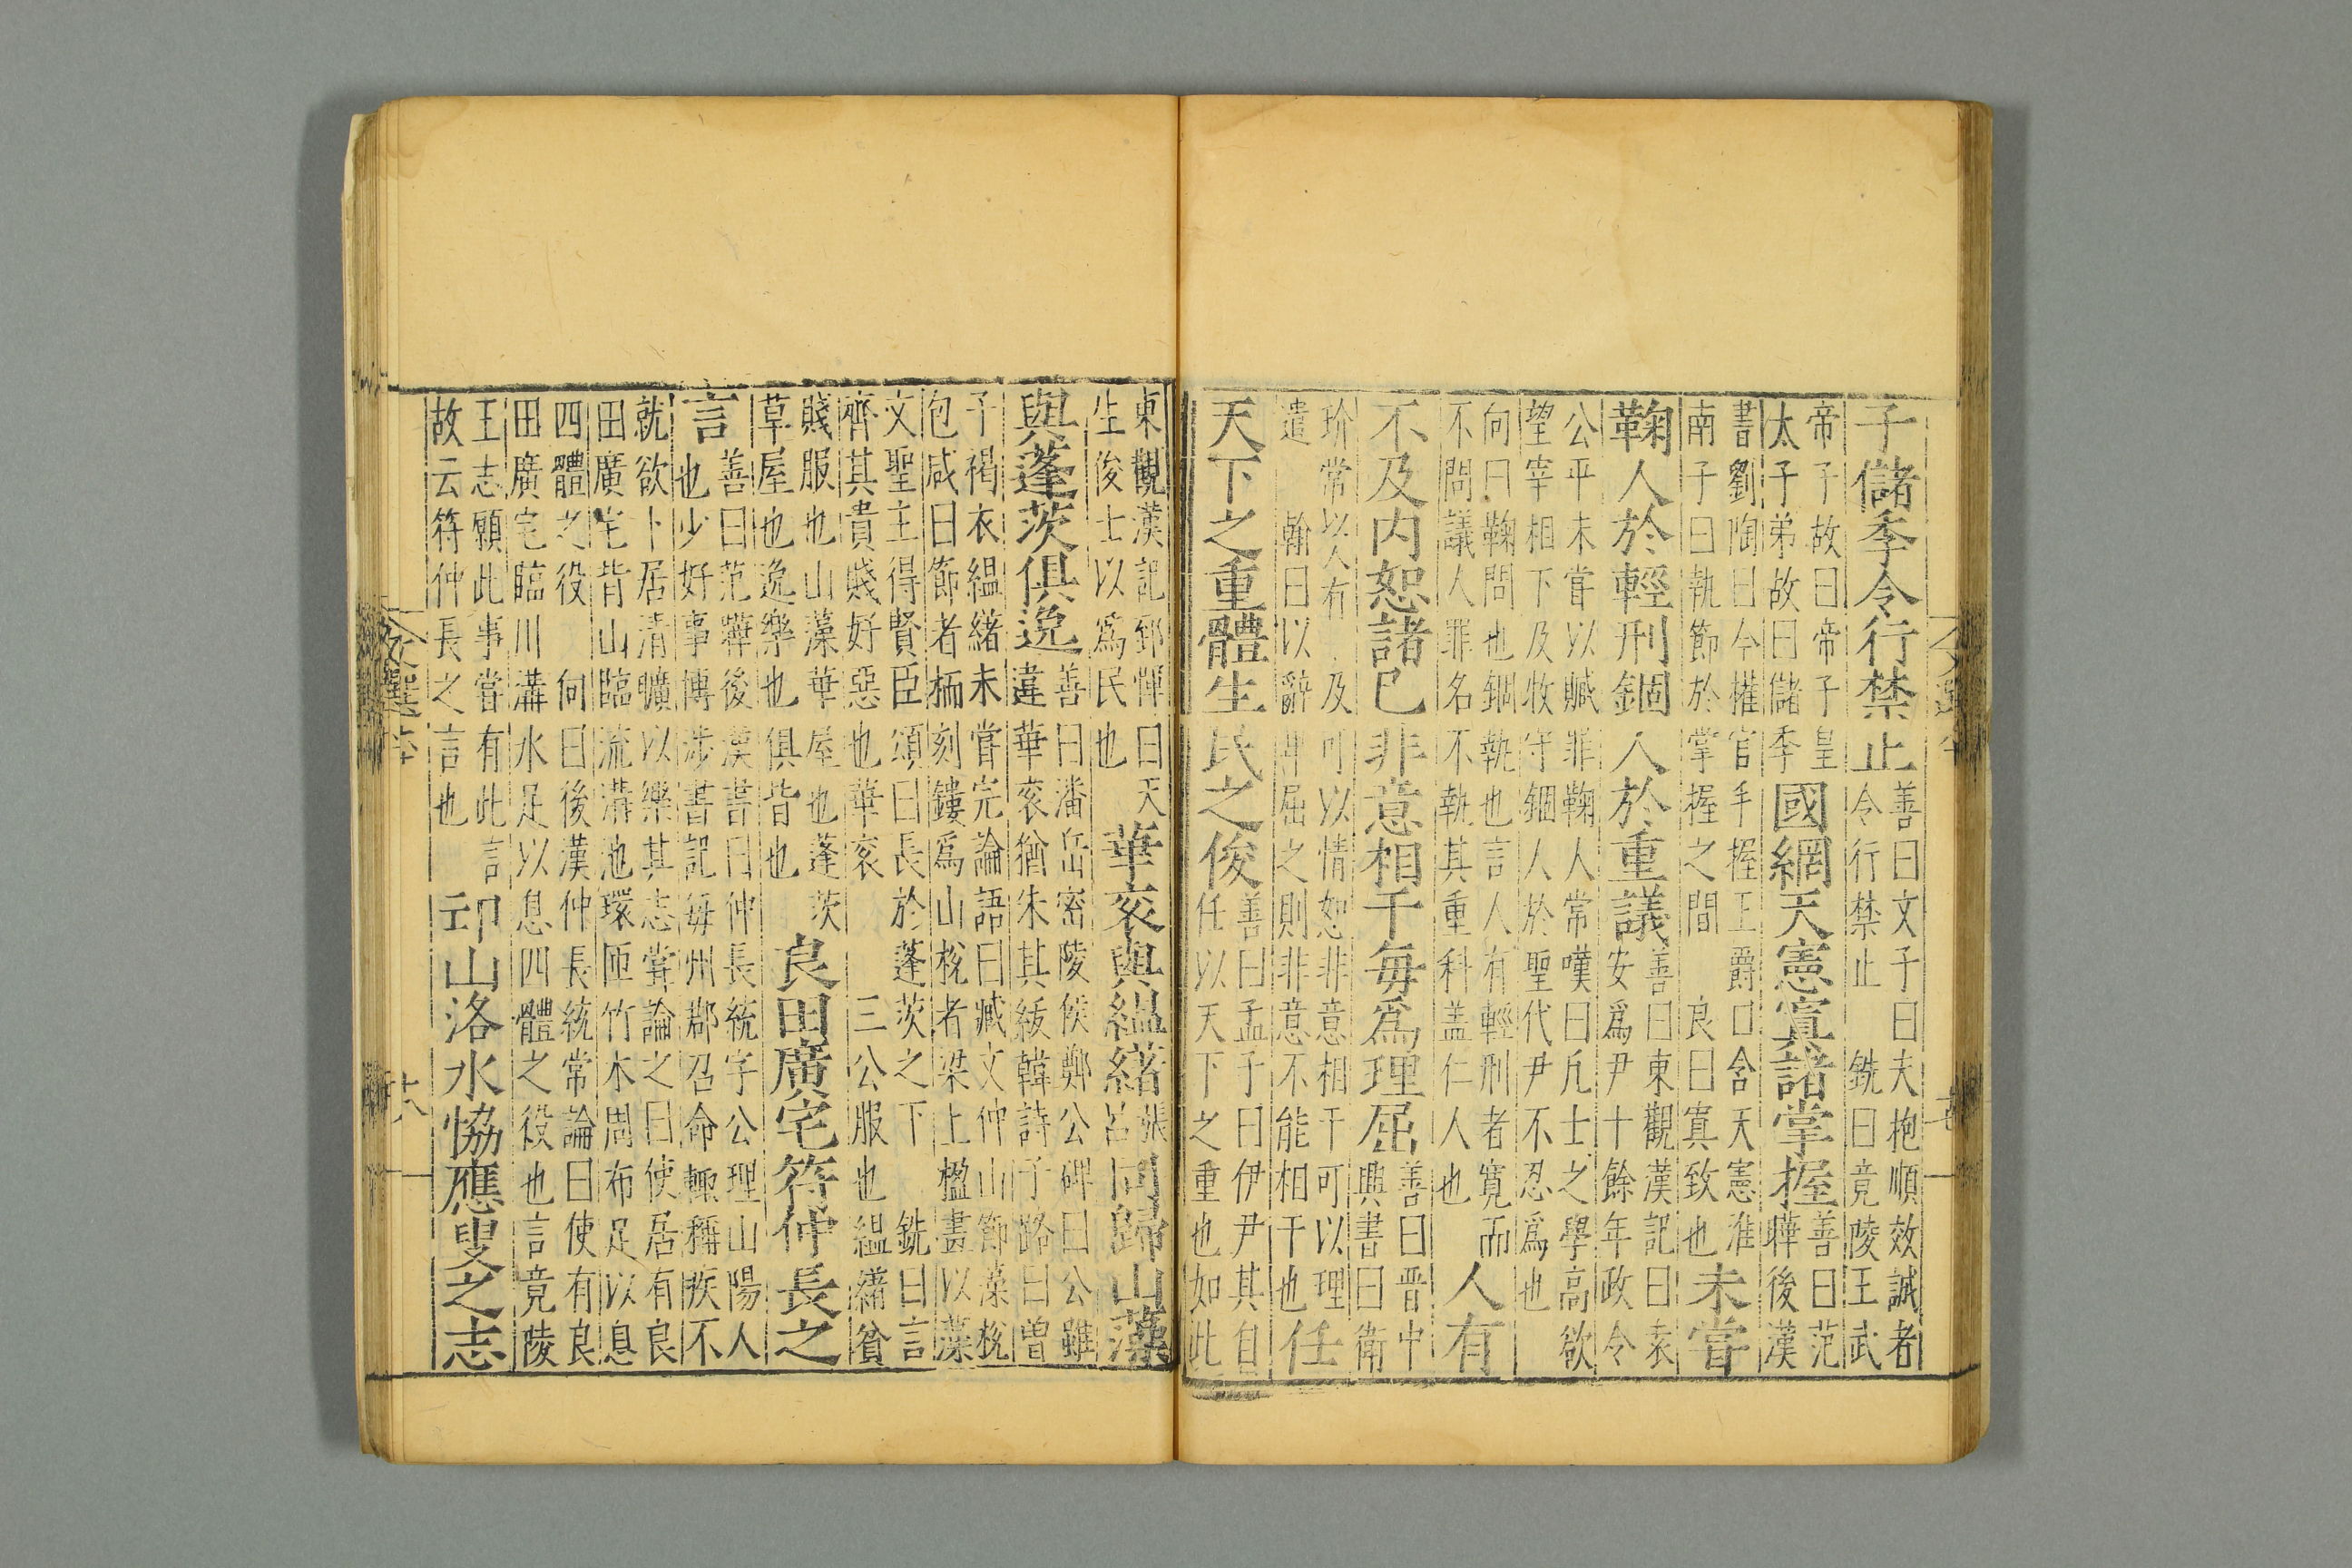 子儲季令行禁止善曰文子曰夫抱順效誠者
令行禁止 銑曰竟陵王武
帝子故曰帝子皇
太子弟故曰儲季國網天憲寘諸掌握善曰范
曄後漢
書劉陶曰今權官手握王爵口含天憲淮
南子曰執節於掌握之間 良曰寘致也未嘗
鞠人於輕刑錮人於重議善曰東觀漢記曰袁
安為尹十餘年政令
公平未嘗以贓罪鞠人常嘆曰凡士之學高欲
望宰相下及牧守錮人於聖代尹不忍爲也
向曰鞠問也錮執也言人有輕刑者寬而
不問議人罪名不執其重科盖仁人也人有
不及内恕諸己非意相干每爲理屈善曰晋中
興書曰衛
玠常以人有不及可以情恕非意相干可以理
遣 翰曰以辭
屈之則非意不能相干也任
天下之重體生民之俊善曰孟子曰伊尹其自
任以天下之重也如此
東觀漢記郅惲曰天
生俊士以爲民也華衮與緼緒同歸山藻
與蓬茨俱逸善曰潘岳密陵侯鄭公碑曰公雖
違華衮猶朱其紱韓詩子路曰曾
子褐衣緼緒未甞完論語曰臧文仲山節藻梲
包咸曰節者栭刻鏤爲山梲者梁上楹畫以藻
文聖主得賢臣頌曰長於蓬茨之下 銑曰言
齊其貴賤好惡也華衮三公服也緼緒貧
賤服也山藻華屋也蓬茨
草屋也逸樂也俱皆也良田廣宅符仲長之
言善曰范曄後漢書曰仲長統字公理山陽人
也少好事博涉書記每州郡召命輒稱疾不
就欲卜居清曠以樂其志甞論之曰使居有良
田廣宅背山臨流溝池環匝竹木周布足以息
四體之役 向曰後漢仲長統常論曰使有良
田廣宅臨川溝水足以息四體之役也言竟陵
王志願此事甞有此言
故云符仲長之言也卭山洛水恊應叟之志
文選
十八